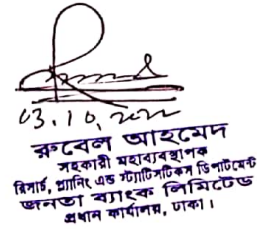 03.10.২০২২
রুবেল আহমেদ
সহকারী মহাব্যবস্থাপক
রিসার্চ, প্ল্যানিং এন্ড স্ট্যাটিসটিকস ডিপার্টমেন্ট
জনতা ব্যাংক লিমিটেড
প্রধান কার্যালয়, ঢাকা।